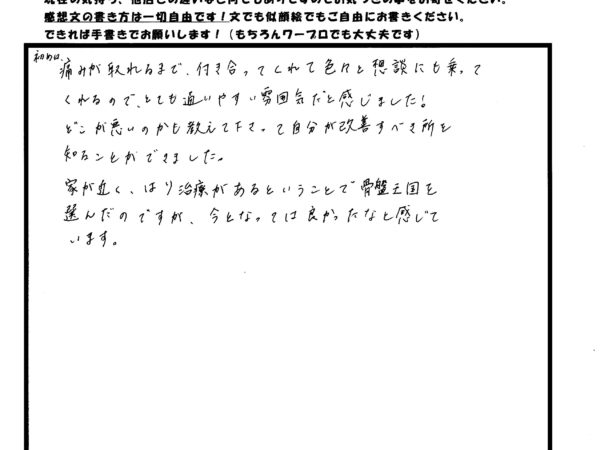 感想文の書き方は一切自由です！文でも似顔絵でもご自由にお書きください。
できれば手書きでお願いします！（もちろんワープロでも大丈夫です）
初めは、
痛みが取れるまで、付き合ってくれて色々と想談にも乗って
くれるので、とても通いやすい雰囲気だと感じました！
どこが悪いのかも教えて下さって自分が改善すべき所を
知ることができました。
家が近く、はり治療があるということで骨盤王国を
選んだのですが、今となっては良かったなと感じて
います。